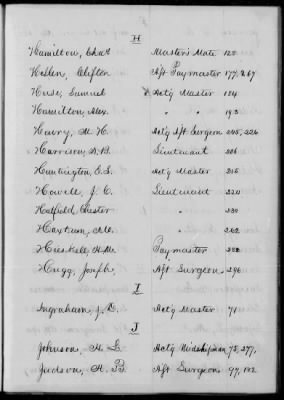 H
Hamilton, Chas. Master's Mate 128
Hellen, Clifton A/st Paymaster 177, 267
Huse, Samuel Act'g Master 184
Hamilton, Alex. " 193
Henry, M. H. Act'g A/st Surgeon 226
Harrison, Lieutenant 206
Huntington, E. S. Act'g Master
Howell, J. C. Lieutenant 220
Hatfield, Chester " 230
Haxtun, M. " 262
Hieskell H. M. Paymaster 288
Hugg, Joseph. A/st Surgeon 296
I
Ingraham, J. D. Act'g Master 78
J
Johnson, H. L. Act'g Midshipman 78, 277,
Judson, A. B. A/st Surgeon 97, 102